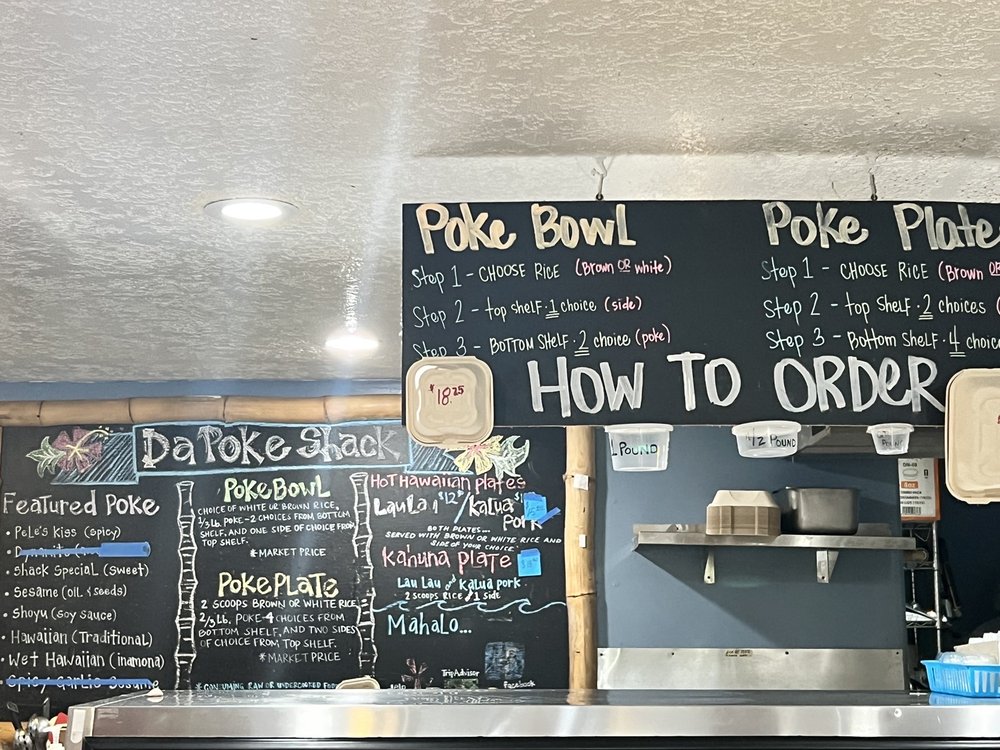 Poke Bowl
Step 1 - CHOOSE RICE (Brown OR white)
Step 2 - top shelf · 1 choice (side)
Step 3 - BOTTOM SHELF · 2 choice (poke)
Poke Plate
Step 1 - CHOOSE RICE (Brown OR
Step 2 - top Shelf · 2 choices
Step 3 - Bottom Shelf · 4 choic
HOW TO ORDER
$18.25
1 POUND
1/2 POUND
POUND
8oz
Da Poke Shack
Featured Poke
• Pele's Kiss (spicy)
• Shack Special (sweet)
• Sesame (oil & seeds)
• Shoyu (soy sauce)
• Hawaiian (Traditional)
• Wet Hawaiian (inamona)
Spicy Garlic Sesame
Poke Bowl
CHOICE OF WHITE OR BROWN RICE,
1/3 Lb. POKE-2 CHOICES FROM BOTTOM
SHELF, AND ONE SIDE OF CHOICE FROM
TOP SHELF.
* MARKET PRICE
Poke Plate
2 SCOOPS BROWN OR WHITE RICE,
2/3 Lb. POKE-4 CHOICES FROM
BOTTOM SHELF, AND TWO SIDES
OF CHOICE FROM TOP SHELF.
*MARKET PRICE
* CONSUMING RAW OR UNDERCOOKED
Hot Hawaiian plates
Lau Lau $12 / Kalua
pork
BOTH PLATES...
SERVED WITH BROWN OR WHITE RICE AND
SIDE OF YOUR CHOICE
Kahuna plate
Lau Lau and Kalua pork
2 SCOOPS RICE & 1 SIDE
Mahalo...
yelp
TripAdvisor
Facebook